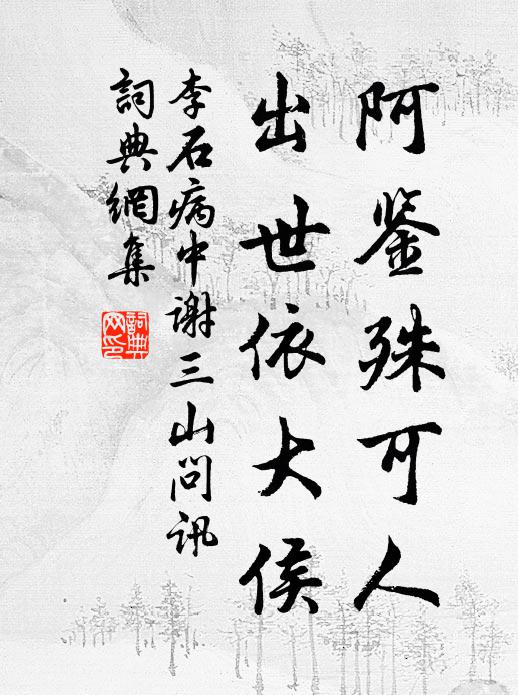 阿鉴殊可人
出世依大侯
李石病中谢三山問訊
詞典網集
詞典网印